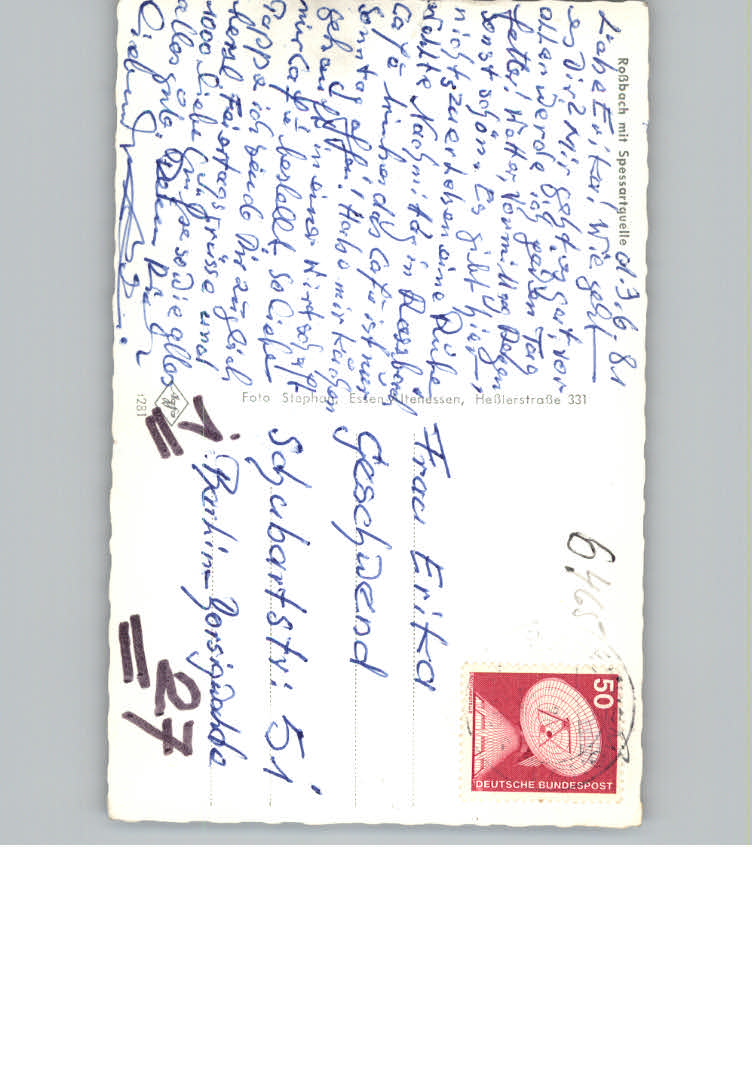 Roßbach mit Spessartquelle
d. 3. 6. 81
Liebe Erika! Wie geht
es Dir? Mir geht es gut, vor
allen werde ich jeden Tag
fetter! Wetter, Vormittag Regen
sonst schön. Es gibt hier
nichts zu erleben eine Ruhe
wollte Nachmittag in Rossbach
Café trinken das Café ist nur
Sonntag offen! Habe mir Kuchen
gekauft in einer Wirtschaft
mir Café bestellt, so liebe
ich sende Dir zugleich
herzl. Feiertagsgrüsse und
1000 liebe
alles gute
Foto Stephan, Essen-Altenessen, Heßlerstraße 331
1281
Frau Erika
Geschwend
Schubartstr. 51
1. Berlin-Borsigwalde
27
6465
50
DEUTSCHE BUNDESPOST